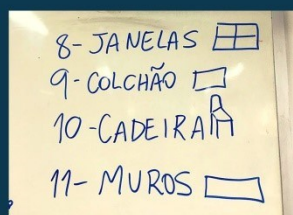 8-JANELAS
9-COLCHÃO
10-CADEIRA
11-MUROS